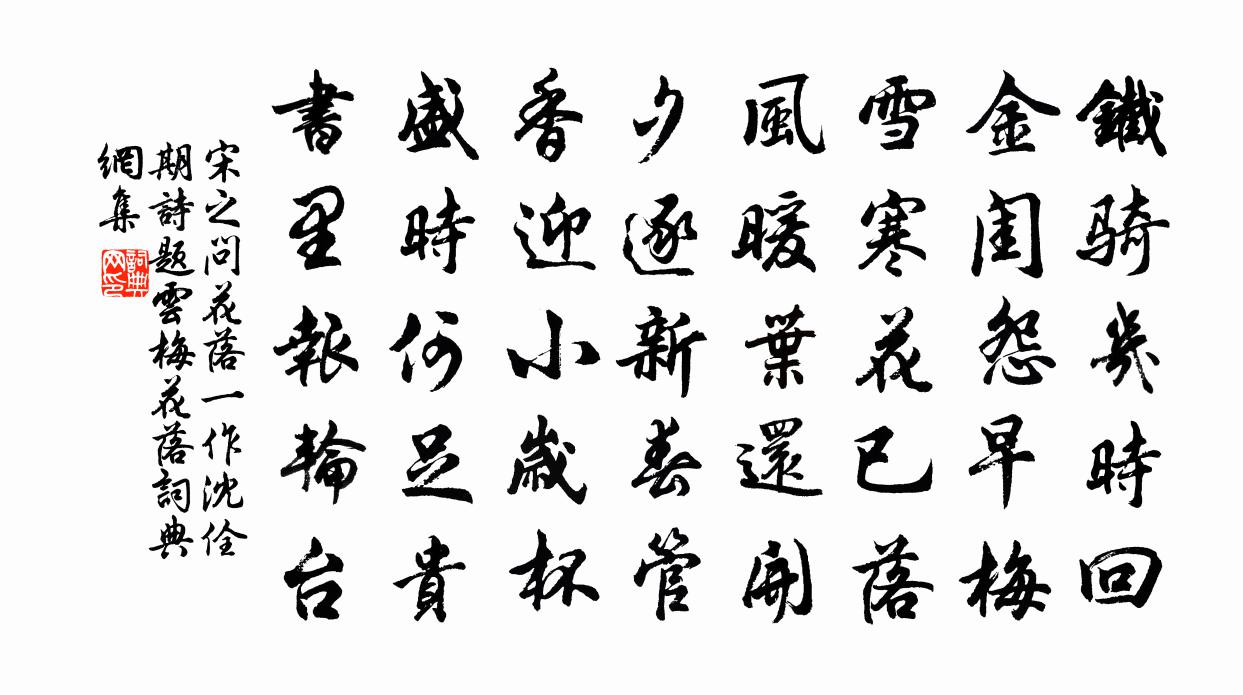 鐵騎幾時回
金閨怨早梅
雪寒花已落
風暖葉還開
夕逐新春管
香迎小歲杯
盛時何足貴
書里報輪台
宋之問花落一作沈佺
期詩題雲梅花落詞典
網集
詞典
网印